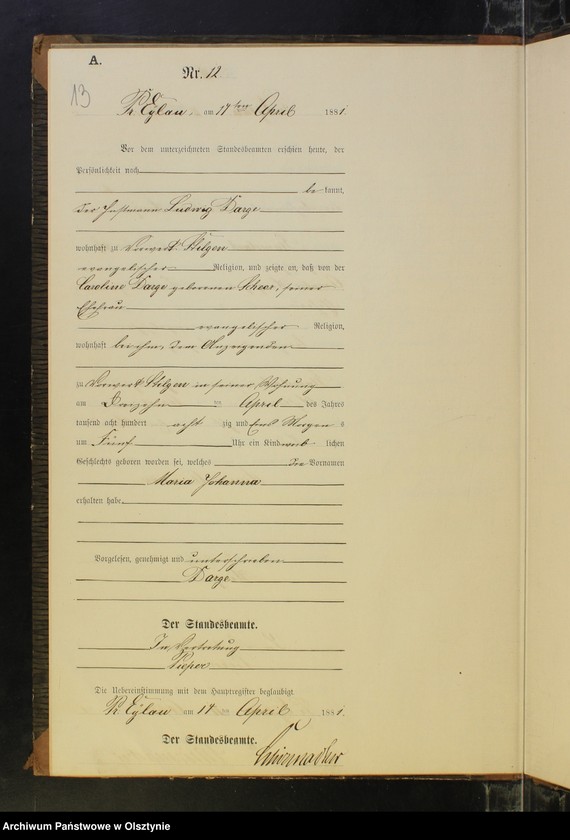 A.
Nr. 12
13
Pr. Eylau, am 17ten April 1881.
Vor dem unterzeichneten Standesbeamten erschien heute, der
Persönlichkeit nach
be kannt,
der Instmann Ludwig Darge
wohnhaft zu Vorwerk Stilgen
evangelischer Religion, und zeigte an, daß von der
Caroline Darge geborenen Scheer, seiner
Ehefrau
evangelischer Religion,
wohnhaft bei ihm, dem Anzeigenden
zu Vorwerk Stilgen in seiner Wohnung
am Dreizehn April des Jahres
tausend acht hundert acht zig und Eins Morgen s
um Fünf Uhr ein Kind weib lichen
Geschlechts geboren worden sei, welches die Vornamen
Maria Johanna
erhalten habe.
Vorgelesen, genehmigt und unterschrieben
Darge
Der Standesbeamte.
In Vertretung
Die Uebereinstimmung mit dem Hauptregister beglaubigt
Pr. Eylau am 17 April 1881.
Der Standesbeamte.
Archiwum Państwowe w Olsztynie